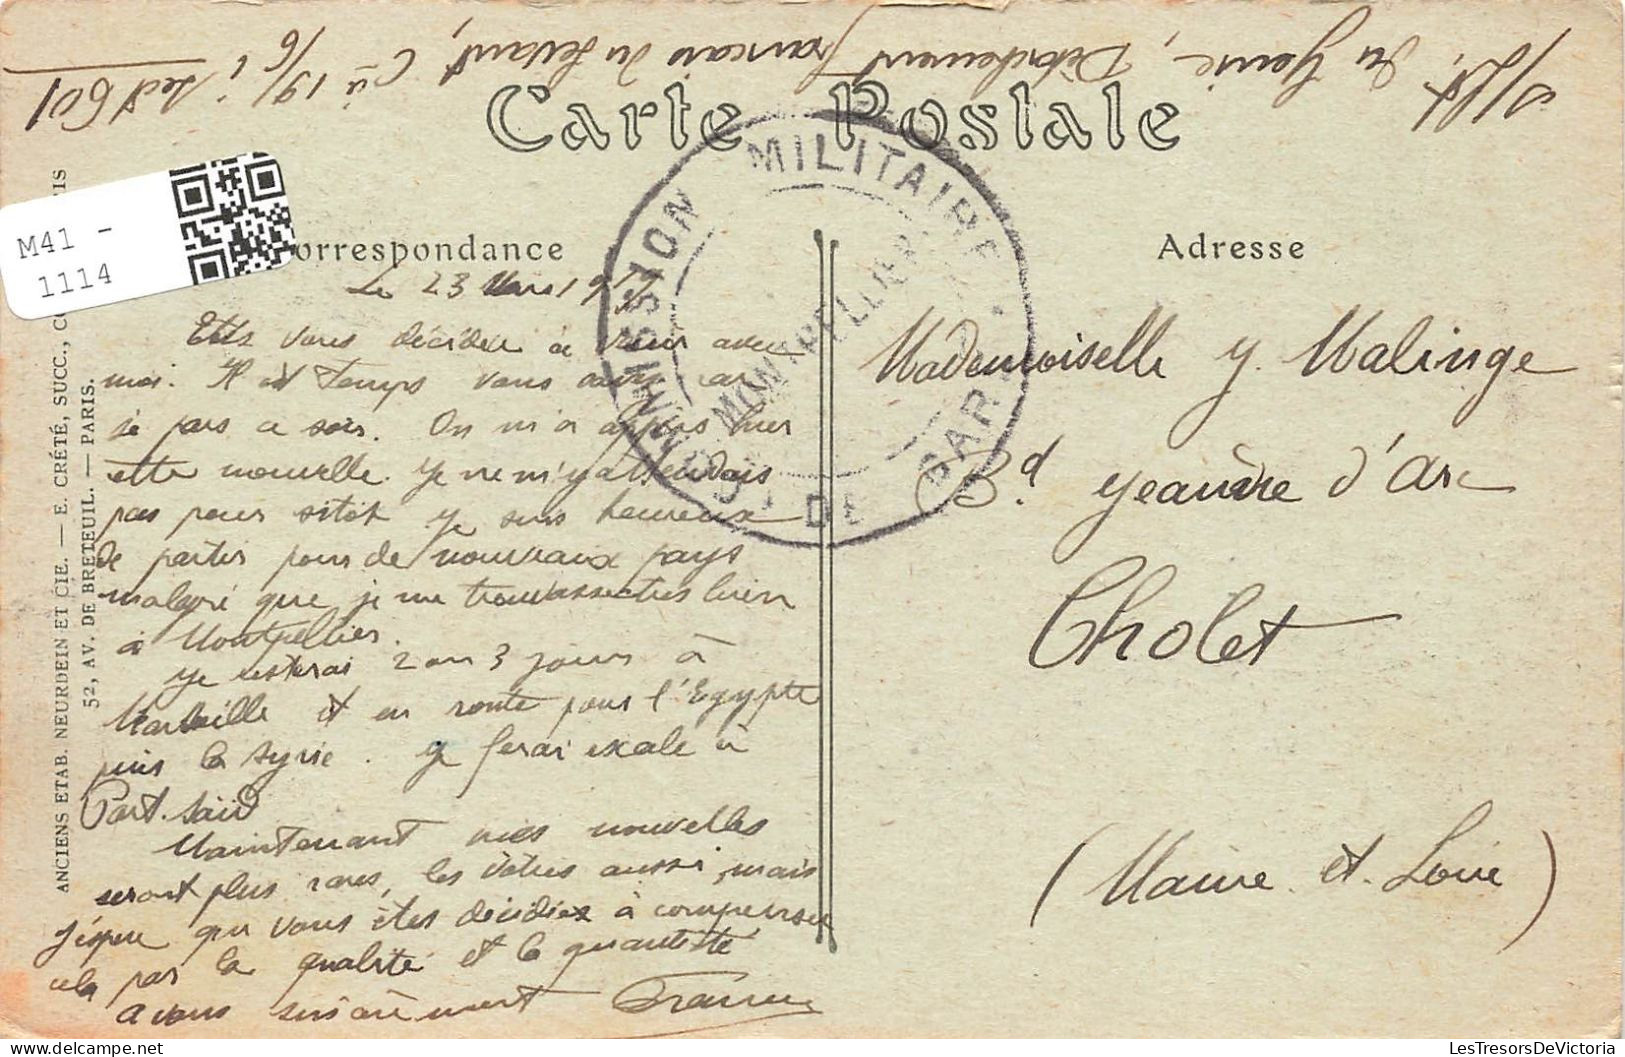 S/Lt. du Génie, Détachement français du Levant, Cie 19/6 1 Sect 601
Carte Postale
COMMISSION MILITAIRE
DE GARE
MONTPELLIER
M41 -
1114
Correspondance
Adresse
Le 23 Mars 1917
Etes vous décidée à venir avec
moi. Il est temps vous savez car
je pars ce soir. On m'a appris hier
cette nouvelle. Je ne m'y attendais
pas pour sitôt. Je suis heureux
de partir pour de nouveaux pays
malgré que je me trouvasse très bien
à Montpellier.
Je resterai 2 ou 3 jours à
Marseille et en route pour l'Egypte
puis la Syrie. Je ferai escale à
Port-Saïd
Maintenant mes nouvelles
seront plus rares, les vôtres aussi, mais
j'espère que vous êtes décidée à compenser
cela par la qualité et la quantité
à vous sincèrement
Mademoiselle Y. Malinge
Bd Jeanne d'Arc
Cholet
(Maine et Loire)
ANCIENS ETAB. NEURDEIN ET CIE. — E. CRÉTÉ, SUCC.,
52, AV. DE BRETEUIL. — PARIS.
LesTresorsDeVictoria